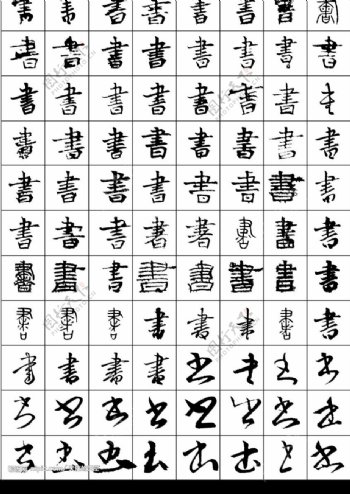 書 書 書 書 書 書 書 書
書 書 書 書 書 書 書 書
書 書 書 書 書 書 書 書
書 書 書 書 書 書 書 書
書 書 書 書 書 書 書 書
書 書 書 書 書 書 書 書
書 書 書 書 書 書 書 書
書 書 書 書 書 書 書 書
書 書 書 書 書 書 書 書
書 書 書 書 書 書 書 書
書 書 書 書 書 書 書 書